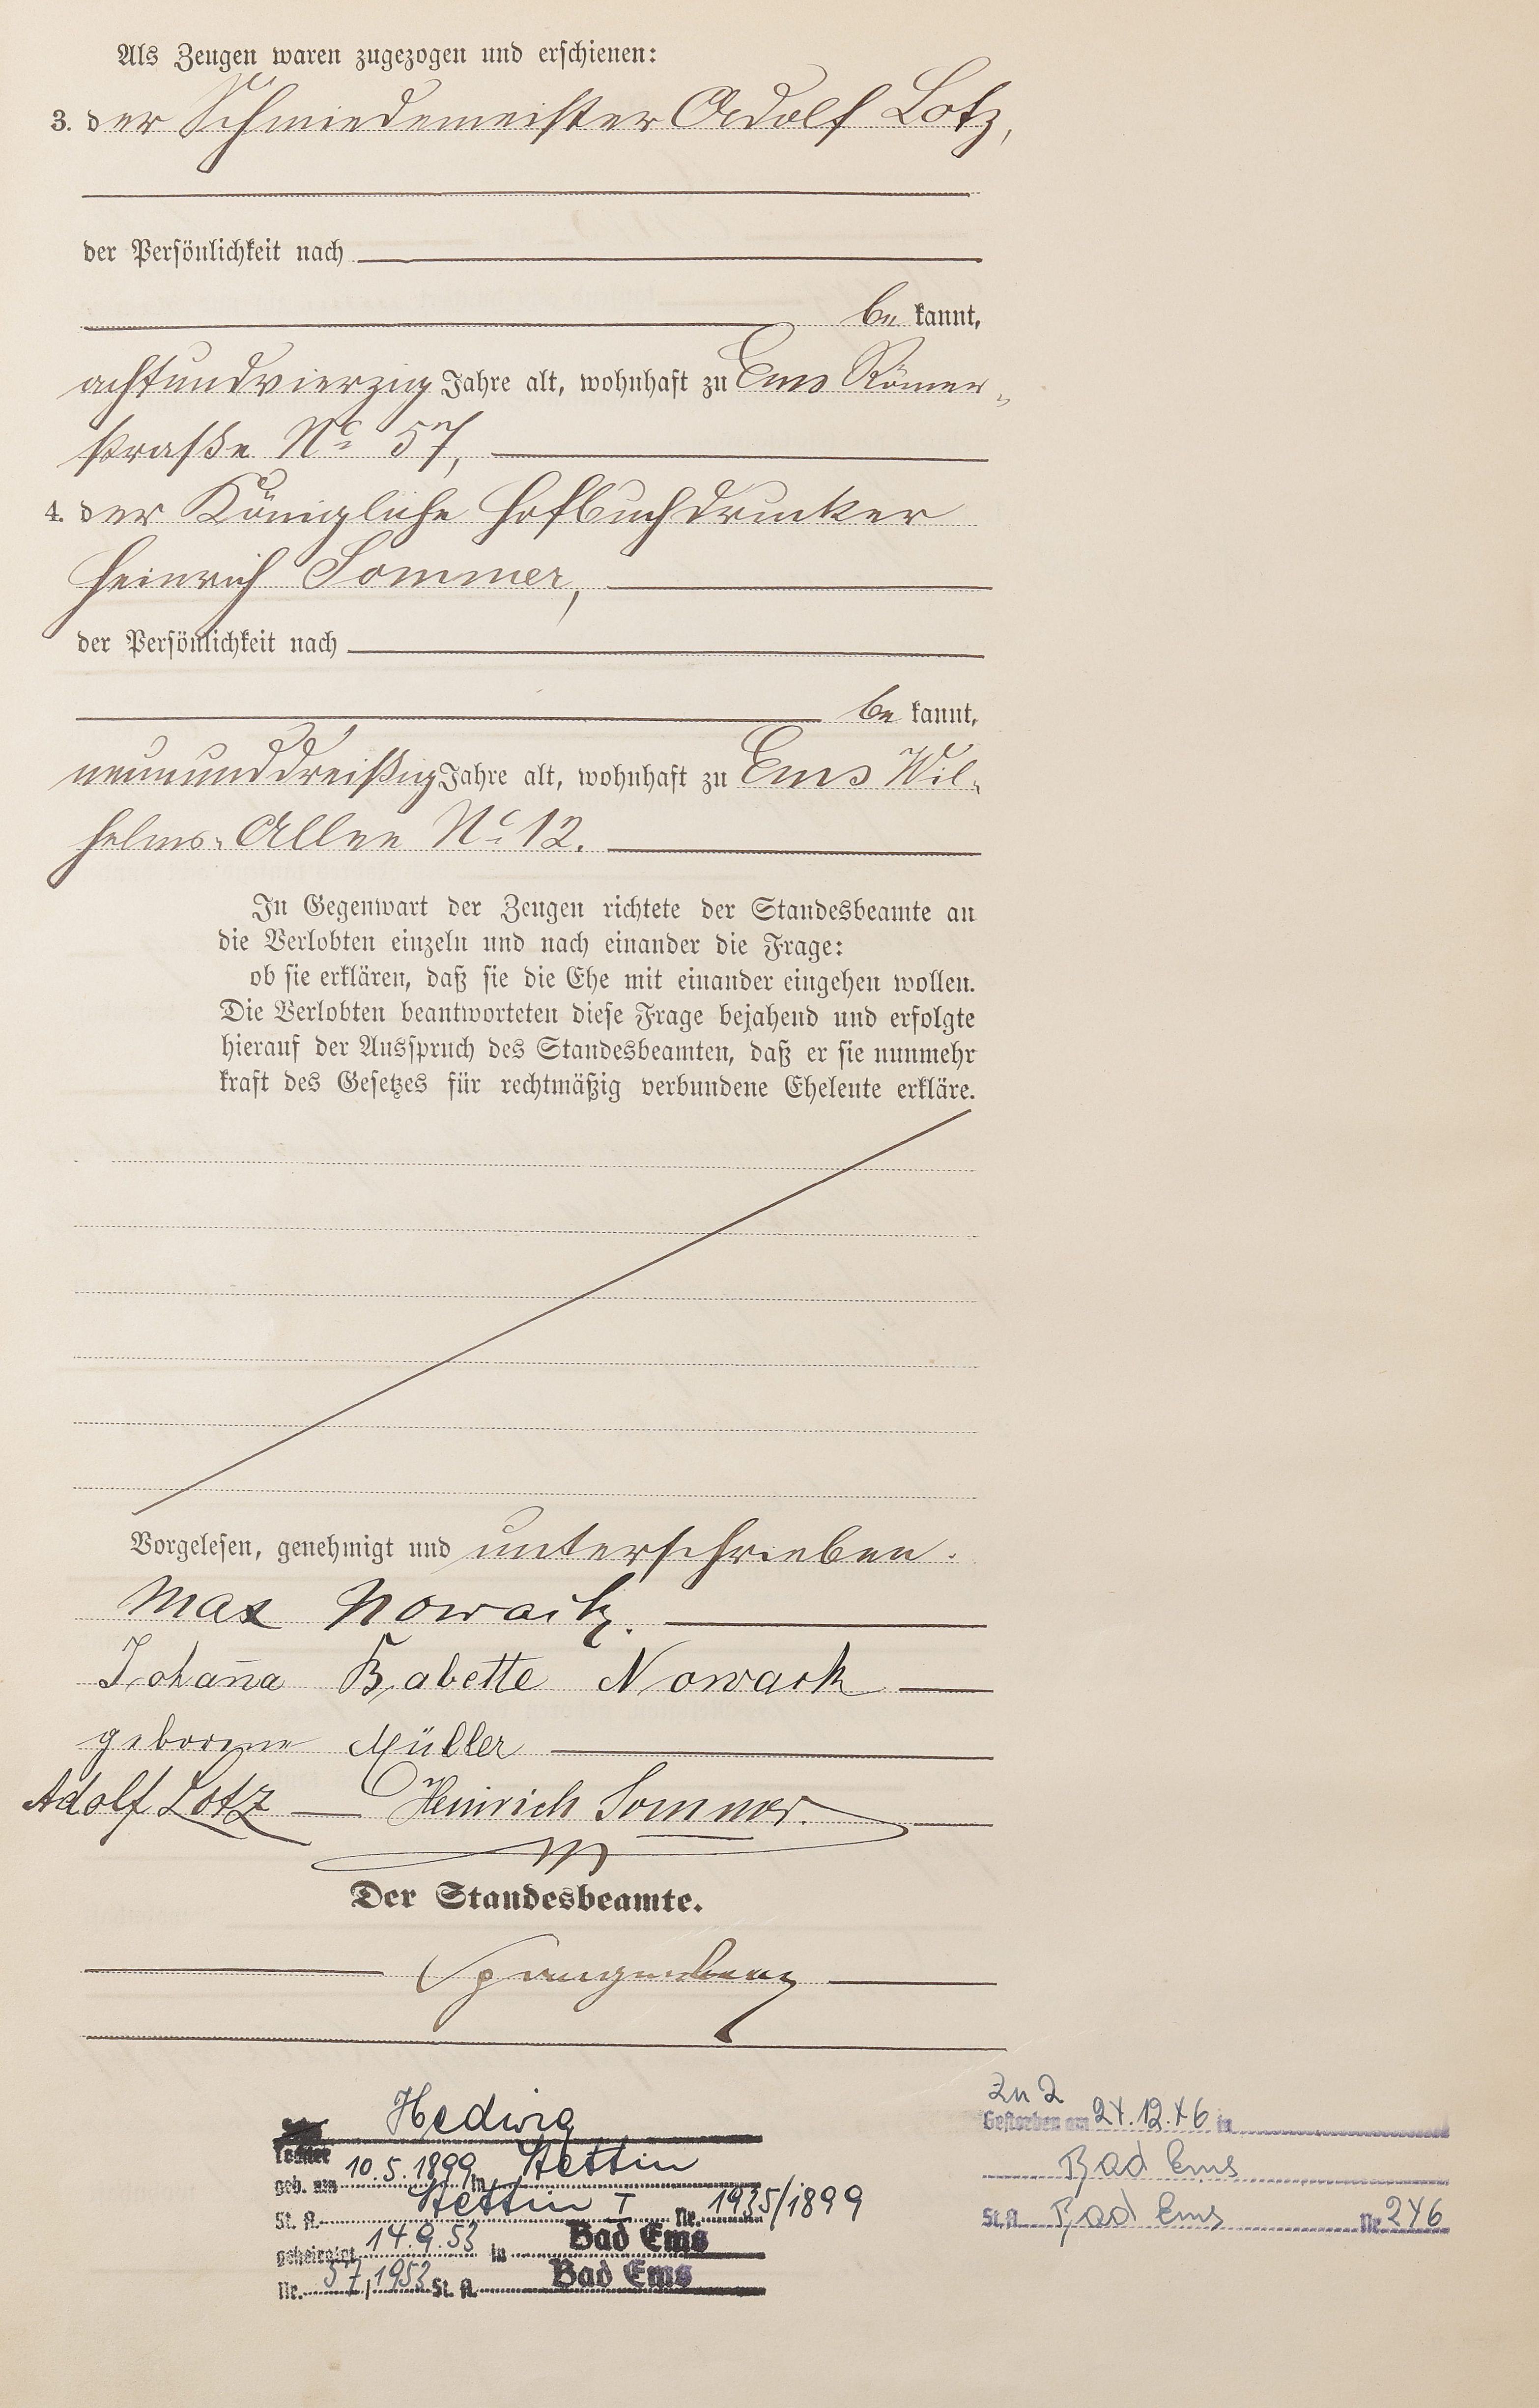 Als Zeugen waren zugezogen und erschienen:
3. der Schmiedemeister Adolf Lotz,
der Persönlichkeit nach
be kannt,
achtundvierzig Jahre alt, wohnhaft zu Ems Römer-
straße No 57,
4. der Königliche Hofbuchdrucker
Heinrich Sommer,
der Persönlichkeit nach
be kannt,
neununddreißig Jahre alt, wohnhaft zu Ems Wil-
helms-Allee No 12.
In Gegenwart der Zeugen richtete der Standesbeamte an
die Verlobten einzeln und nach einander die Frage:
ob sie erklären, daß sie die Ehe mit einander eingehen wollen.
Die Verlobten beantworteten diese Frage bejahend und erfolgte
hierauf der Ausspruch des Standesbeamten, daß er sie nunmehr
kraft des Gesetzes für rechtmäßig verbundene Eheleute erkläre.
Vorgelesen, genehmigt und unterschrieben.
Max Nowack.
Johan̄a Babette Nowack
geborene Müller
Adolf Lotz Heinrich Sommer.
Der Standesbeamte.
Spangenberg
Hedwig
Tochter
geb. am 10.5.1899 in Stettin
St. A. Stettin I Nr. 1935/1899
geheiratet 14.9.53 in Bad Ems
Nr. 57/1953 St. A. Bad Ems
Zu 2
Gestorben am 24.12.46 in
Bad Ems
St. A. Bad Ems Nr. 246